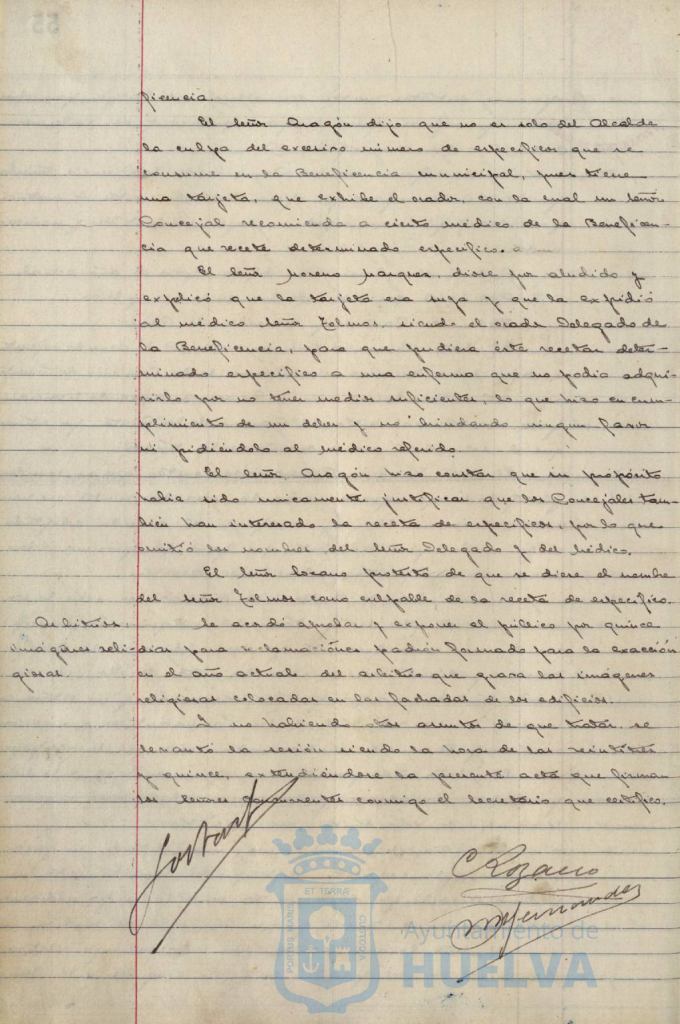 ficencia.
El Señor Aragón dijo que no es solo del Alcalde
la culpa del excesivo número de específicos que se
consume en la Beneficencia municipal, pues tiene
una tarjeta, que exhibe el orador, con la cual un Señor
Concejal recomienda a cierto médico de la Beneficen-
cia que recete determinado específico.
El Señor Moreno Marquez, diose por aludido y
explicó que la tarjeta era suya y que la expidió
al médico Señor Tolmos, siendo el orador Delegado de
la Beneficencia, para que pudiera éste recetar deter-
minado específico a una enferma que no podía adqui-
rirlo por no tener medios suficientes, lo que hizo en cum-
plimiento de un deber y no brindando ningun favor
ni pidiéndolo al médico referido.
El Señor Aragón hizo constar que su propósito
había sido unicamente justificar que los Concejales tam-
bién han interesado la receta de específicos, por lo que
omitió los nombres del Señor Delegado y del Médico.
El Señor Lozano protestó de que se diese el nombre
del Señor Tolmos como culpable de la receta de específico.
Arbitrios:
imágenes reli-
giosas.
Se acordó aprobar y exponer al público por quince
dias para reclamaciónes padrón formado para la exacción
en el año actual del arbitrio que grava las imágenes
religiosas colocadas en las fachadas de los edificios.
Y no habiendo otros asuntos de que tratar, se
levantó la sesión siendo la hora de las veintitres
y quince, extendiéndose la presente acta que firman
los Señores concurrentes conmigo el Secretario que certifico.
C Lozano
M Hernandez
PORTUS MARIS
ET TERRÆ
CUSTODIA
Ayuntamiento de
HUELVA